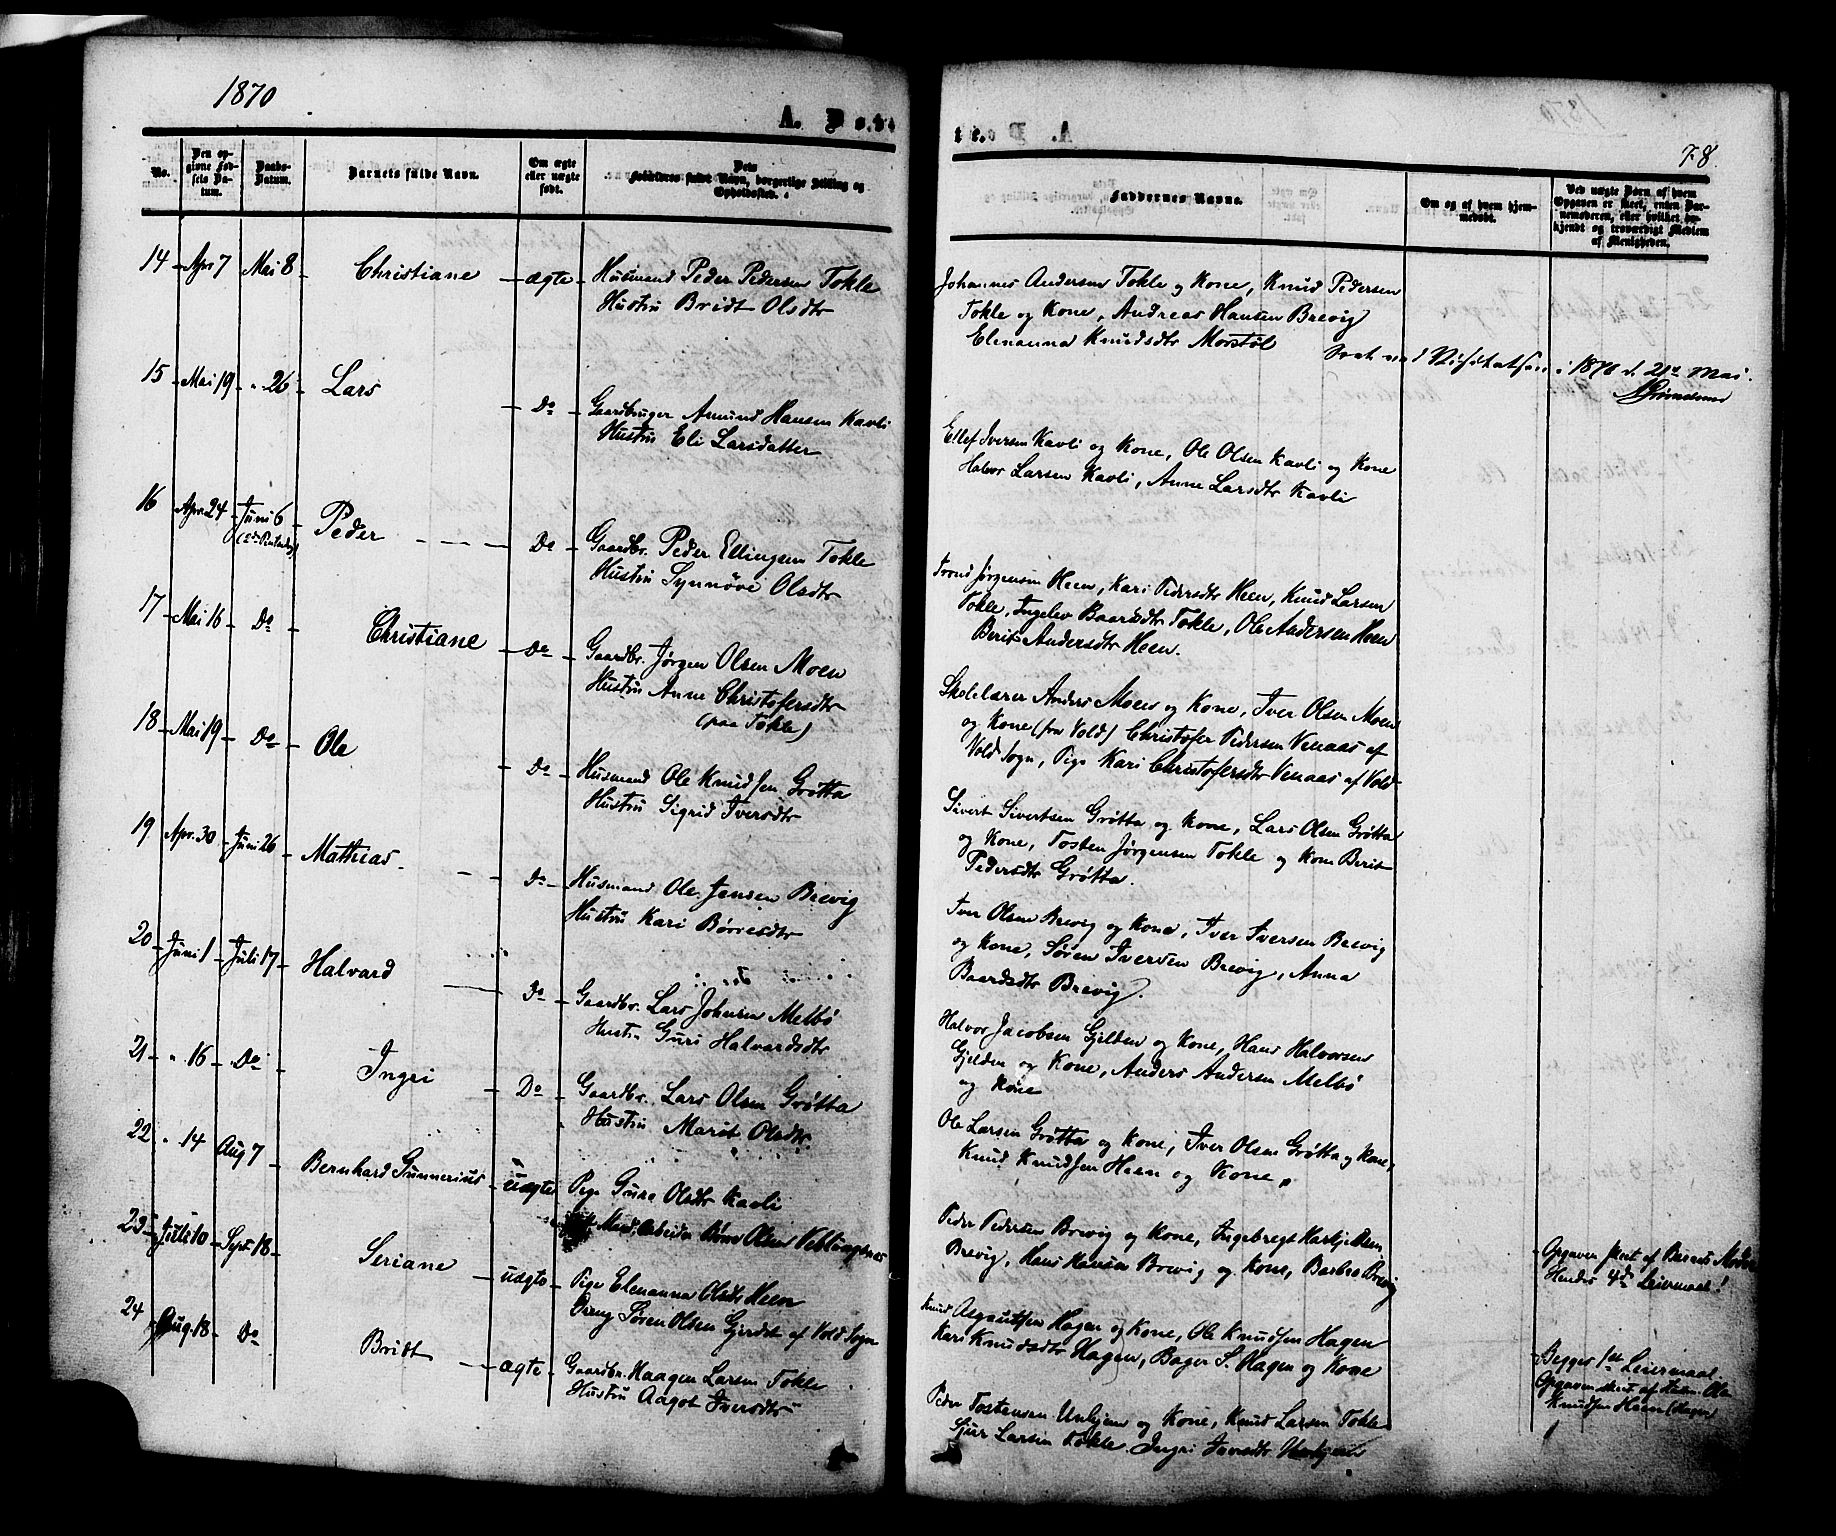 1870
A. Døbte.
78.
No.
Den opgivne Fødsels Datum.
Daabs-Datum.
Barnets fulde Navn.
Om ægte eller uægte født.
Forældres fulde Navn, borgerlige Stilling og Opholdssted.
Faddernes Navne.
Om og af hvem hjemmedøbt.
Ved uægte Børn, af hvem Opgaven er skeet, enten Barnemoderen, eller hvilket bekjendt og troværdigt Medlem af Menigheden.
14 Apr 7 Mai 8 Christiane ægte Husmand Peder Pedersen Tokle
Hustru Bridt Olsdtr
Johannes Andersen Tokle og Kone, Knud Pedersen
Tokle og Kone, Andreas Hansen Brevig
Elenanna Knudsdtr Morstøl
Seet ved Visitatsen i 1870 d. 21de Mai.
15 Mai 19 " 26 Lars Do Gaardbruger Amund Hansen Kavli
Hustru Eli Larsdatter
Ellef Iversen Kavli og Kone, Ole Olsen Kavli og Kone
Halvor Larsen Kavli, Anne Larsdtr Kavli
16 Apr. 24 Juni 6 Peder Do Gaardbr. Peder Ellingsen Tokle
Hustru Synnøve Olsdtr
Trond Jørgensen Heen, Kari Pedersdtr Heen, Knud Larsen
Tokle, Ingelev Baardsdtr Tokle, Ole Andersen Heen
Berit Andersdtr Heen.
17 Mai 16 Do Christiane Do Gaardbr. Jørgen Olsen Moen
Hustru Anne Christofersdtr
(paa Tokle)
Skolelærer Anders Moen og Kone, Iver Olsen Moen
og Kone (fra Vold) Christofer Pedersen Venaas af
Vold Sogn, Pige Kari Christofersdtr Venaas af Vold
18 Mai 19 Do Ole Do Husmand Ole Knudsen Grøtta
Hustru Sigrid Iversdtr
Sivert Sivertsen Grøtta og Kone, Lars Olsen Grøtta
og Kone, Tosten Jørgensen Tokle og Kone Berit
Pedersdtr Grøtta.
19 Apr. 30 Juni 26 Mathias Do Husmand Ole Jensen Brevig
Hustru Kari Børresdtr
Iver Olsen Brevig og Kone, Iver Iversen Brevig
og Kone, Søren Iversen Brevig, Anna
Baardsdtr Brevig.
20 Juni 1 Juli 17 Halvard Do Gaardbr. Lars Johnsen Melbø
Hustru Guri Halvardsdtr
Halvor Jacobsen Gjelden og Kone, Hans Halvorsen
Gjelden og Kone, Anders Andersen Melbø
og Kone
21 " 16 Do Ingri Do Gaardbr. Lars Olsen Grøtta
Hustru Marit Olsdtr
Ole Larsen Grøtta og Kone, Iver Olsen Grøtta og Kone,
Knud Knudsen Heen og Kone.
22 " 14 Aug 7 Bernhard Gunnerius uægte Pige Gura Olsdtr Kavli
Olsen Veblungsnes
Peder Pedersen Brevig og Kone, Ingebregt
Brevig, Hans Hansen Brevig og Kone, Barbro Brevig
Opgaven skeet af Barnets Moder
Hendes 4de Leiermaal!
23 Juli 10 Sept 18 Seriane uægte Pige Elenanna Olsdtr Heen
Søren Olsen Gjerdet af Vold Sogn
Knud Asgautsen Hagen og Kone, Ole Knudsen Hagen
Kari Knudsdtr Hagen, Bager S. Hagen og Kone
Begges 1ste Leiermaal.
Opgaven skeet af Ole
Knudsen Heen (Hagen)
24 Aug. 18 Do Bridt ægte Gaardbr. Haagen Larsen Tokle
Hustru Aagot Iversdtr
Peder Tostensen Unhjem og Kone, Knud Larsen Tokle
Sjur Larsen Tokle. Ingri Iversdtr